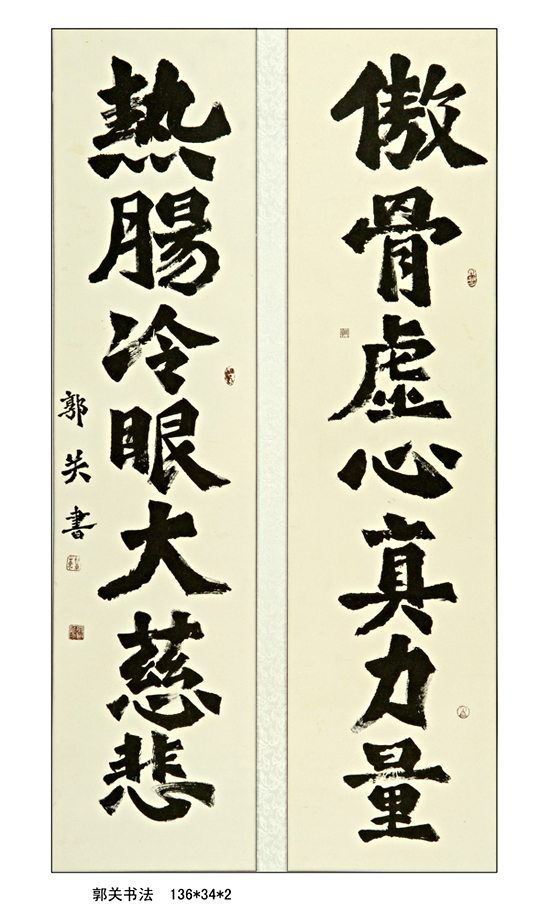 傲骨虛心真力量
熱腸冷眼大慈悲
郭关書
郭关书法 136*34*2